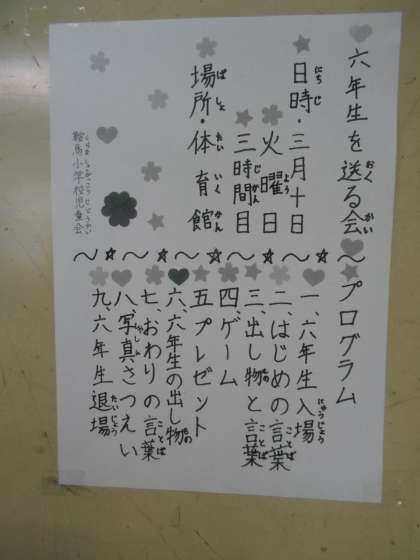 六年生を送る会
日時・三月十日
火曜日
三時間目
場所・体育館
鞍馬小学校児童会
プログラム
一、六年生入場
二、はじめの言葉
三、出し物と言葉
四、ゲーム
五、プレゼント
六、六年生の出し物
七、おわりの言葉
八、写真さつえい
九、六年生退場